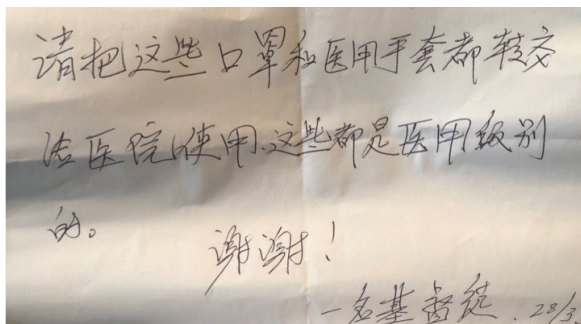 请把这些口罩和医用手套都转交
给医院使用、这些都是医用级别
的。
谢谢！
一名基督徒. 28/3.